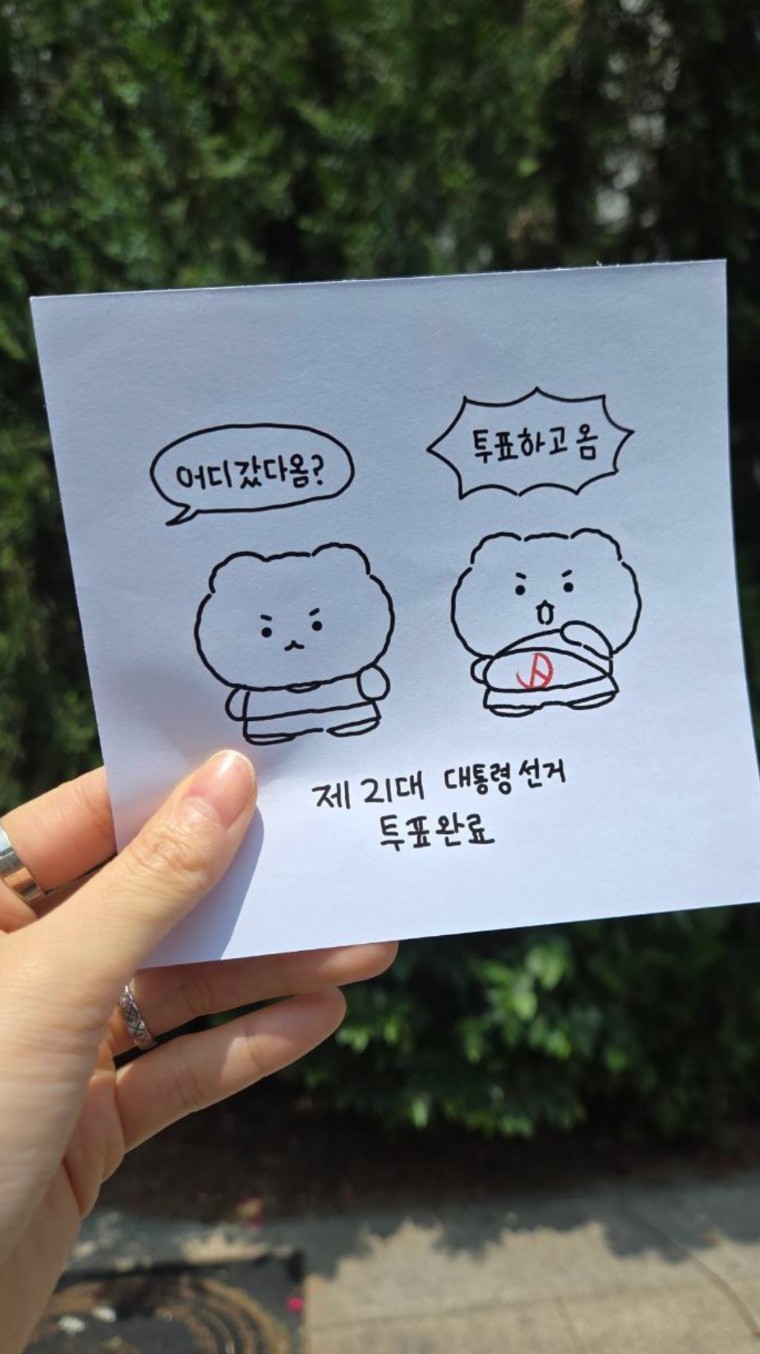 어디갔다옴?
투표하고 옴
제 21대 대통령 선거
투표완료